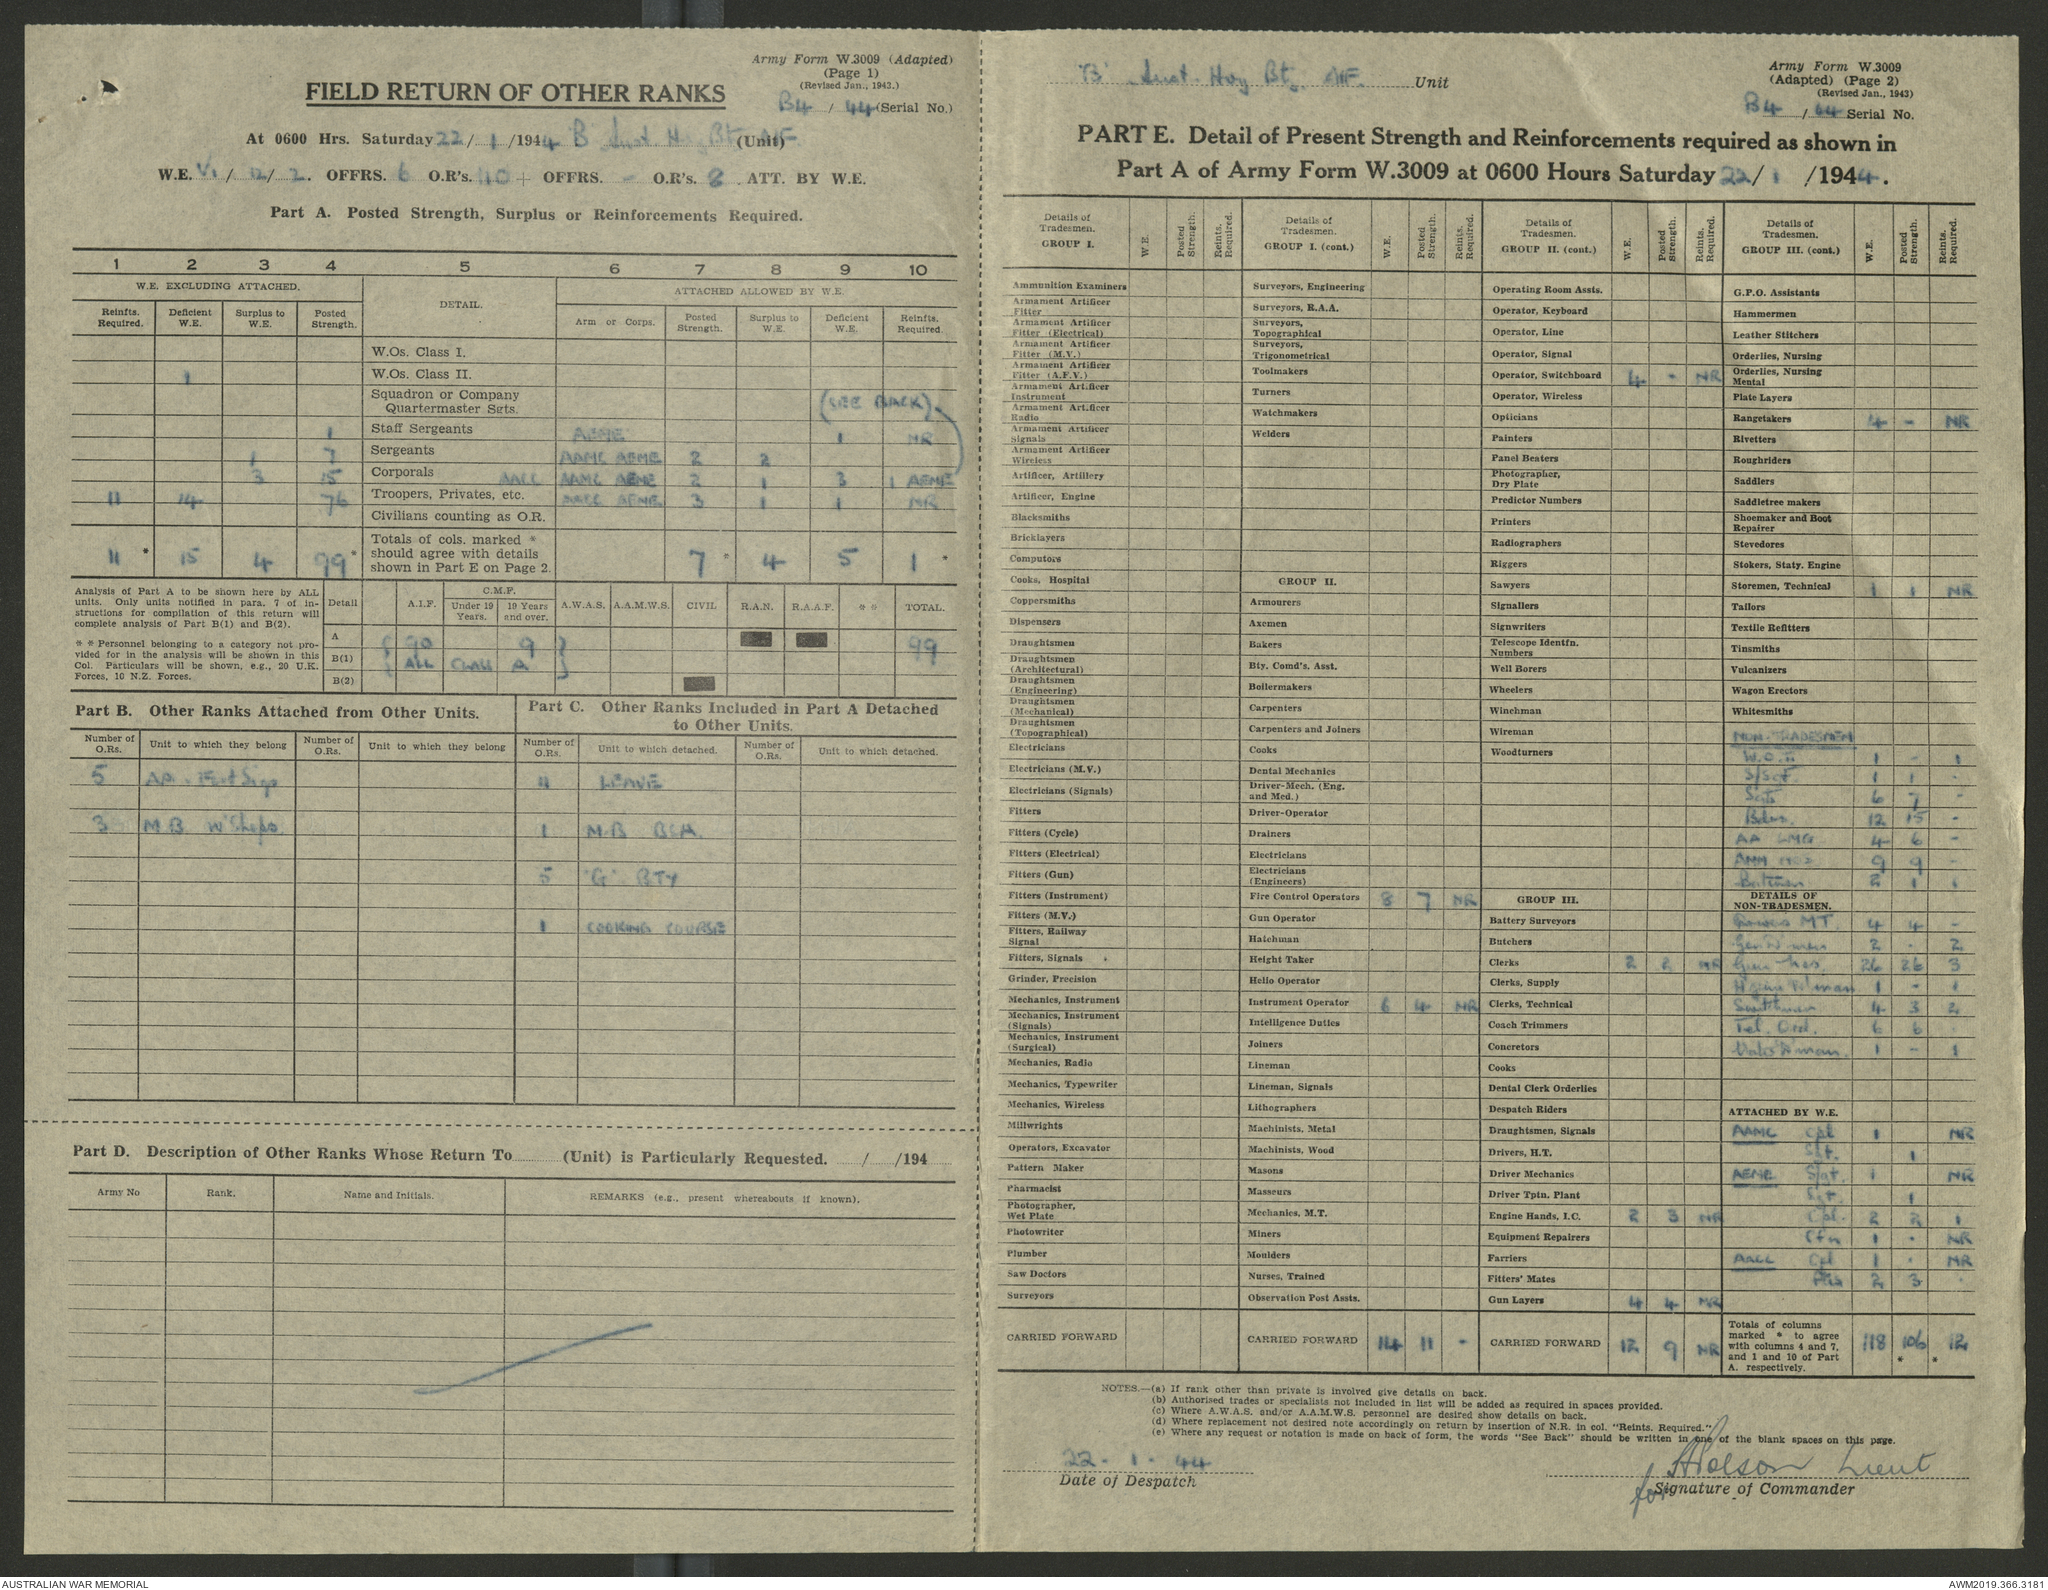 Army Form W.3009 (Adapted)
(Page 1)
(Revised Jan., 1943.)
B4 / 44 (Serial No.)
FIELD RETURN OF OTHER RANKS
At 0600 Hrs. Saturday 22/1/1944 'B' Aust Hvy Bty AIF (Unit)
W.E. VI / 12 / 2. OFFRS. 6 O.R's. 110 + OFFRS. - O.R's. 8 ATT. BY W.E.
Part A. Posted Strength, Surplus or Reinforcements Required.
1 2 3 4 5 6 7 8 9 10
W.E. EXCLUDING ATTACHED. DETAIL. ATTACHED ALLOWED BY W.E.
Reinfts. Required. Deficient W.E. Surplus to W.E. Posted Strength. Arm or Corps. Posted Strength. Surplus to W.E. Deficient W.E. Reinfts. Required.
W.Os. Class I.
1 W.Os. Class II.
Squadron or Company Quartermaster Sgts. (SEE BACK)
1 Staff Sergeants AEME 1 NR
1 7 Sergeants AAMC AEME 2 2
3 15 Corporals AACC AAMC AEME 2 1 3 1 AEME
11 14 76 Troopers, Privates, etc. AACC AEME 3 1 1 NR
Civilians counting as O.R.
11 * 15 4 99 * Totals of cols. marked * should agree with details shown in Part E on Page 2. 7 * 4 5 1 *
Analysis of Part A to be shown here by ALL units. Only units notified in para. 7 of instructions for compilation of this return will complete analysis of Part B(1) and B(2).
* * Personnel belonging to a category not provided for in the analysis will be shown in this Col. Particulars will be shown, e.g., 20 U.K. Forces, 10 N.Z. Forces.
Detail A.I.F. C.M.F. Under 19 Years. 19 Years and over. A.W.A.S. A.A.M.W.S. CIVIL R.A.N. R.A.A.F. * * TOTAL.
A 90 9 99
B(1) ALL CLASS A
B(2)
Part B. Other Ranks Attached from Other Units.
Number of O.Rs. Unit to which they belong Number of O.Rs. Unit to which they belong
5
3 M.B W'Shops
Part C. Other Ranks Included in Part A Detached to Other Units.
Number of O.Rs. Unit to which detached. Number of O.Rs. Unit to which detached.
11 LEAVE
1 M.B BCH.
5 'G' BTY
1 COOKING COURSE
Part D. Description of Other Ranks Whose Return To (Unit) is Particularly Requested. / /194
Army No Rank. Name and Initials. REMARKS (e.g., present whereabouts if known).
'B' Aust. Hvy Bty. AIF. Unit
Army Form W.3009
(Adapted) (Page 2)
(Revised Jan., 1943)
B4 / 44 Serial No.
PART E. Detail of Present Strength and Reinforcements required as shown in
Part A of Army Form W.3009 at 0600 Hours Saturday 22/1/1944.
Details of Tradesmen. GROUP I. W.E. Posted Strength. Reints. Required.
Ammunition Examiners
Armament Artificer Fitter
Armament Artificer Fitter (Electrical)
Armament Artificer Fitter (M.V.)
Armament Artificer Fitter (A.F.V.)
Armament Artificer Instrument
Armament Artificer Radio
Armament Artificer Signals
Armament Artificer Wireless
Artificer, Artillery
Artificer, Engine
Blacksmiths
Bricklayers
Computors
Cooks, Hospital
Coppersmiths
Dispensers
Draughtsmen
Draughtsmen (Architectural)
Draughtsmen (Engineering)
Draughtsmen (Mechanical)
Draughtsmen (Topographical)
Electricians
Electricians (M.V.)
Electricians (Signals)
Fitters
Fitters (Cycle)
Fitters (Electrical)
Fitters (Gun)
Fitters (Instrument)
Fitters (M.V.)
Fitters, Railway Signal
Fitters, Signals
Grinder, Precision
Mechanics, Instrument
Mechanics, Instrument (Signals)
Mechanics, Instrument (Surgical)
Mechanics, Radio
Mechanics, Typewriter
Mechanics, Wireless
Millwrights
Operators, Excavator
Pattern Maker
Pharmacist
Photographer, Wet Plate
Photowriter
Plumber
Saw Doctors
Surveyors
CARRIED FORWARD
Details of Tradesmen. GROUP I. (cont.) W.E. Posted Strength. Reints. Required.
Surveyors, Engineering
Surveyors, R.A.A.
Surveyors, Topographical
Surveyors, Trigonometrical
Toolmakers
Turners
Watchmakers
Welders
GROUP II.
Armourers
Axemen
Bakers
Bty. Comd's. Asst.
Boilermakers
Carpenters
Carpenters and Joiners
Cooks
Dental Mechanics
Driver-Mech. (Eng. and Med.)
Driver-Operator
Drainers
Electricians
Electricians (Engineers)
Fire Control Operators 8 7 NR
Gun Operator
Hatchman
Height Taker
Hello Operator
Instrument Operator 6 4 NR
Intelligence Duties
Joiners
Lineman
Lineman, Signals
Lithographers
Machinists, Metal
Machinists, Wood
Masons
Masseurs
Mechanics, M.T.
Miners
Moulders
Nurses, Trained
Observation Post Assts.
CARRIED FORWARD 14 11 -
Details of Tradesmen. GROUP II. (cont.) W.E. Posted Strength. Reints. Required.
Operating Room Assts.
Operator, Keyboard
Operator, Line
Operator, Signal
Operator, Switchboard 4 - NR
Operator, Wireless
Opticians
Painters
Panel Beaters
Photographer, Dry Plate
Predictor Numbers
Printers
Radiographers
Riggers
Sawyers
Signallers
Signwriters
Telescope Identfn. Numbers
Well Borers
Wheelers
Winchman
Wireman
Woodturners
GROUP III.
Battery Surveyors
Butchers
Clerks 2 2 NR
Clerks, Supply
Clerks, Technical
Coach Trimmers
Concretors
Cooks
Dental Clerk Orderlies
Despatch Riders
Draughtsmen, Signals
Drivers, H.T.
Driver Mechanics
Driver Tptn. Plant
Engine Hands, I.C. 2 3 NR
Equipment Repairers
Farriers
Fitters' Mates
Gun Layers 4 4 NR
CARRIED FORWARD 12 9 NR
Details of Tradesmen. GROUP III. (cont.) W.E. Posted Strength. Reints. Required.
G.P.O. Assistants
Hammermen
Leather Stitchers
Orderlies, Nursing
Orderlies, Nursing Mental
Plate Layers
Rangetakers 4 - NR
Rivetters
Roughriders
Saddlers
Saddletree makers
Shoemaker and Boot Repairer
Stevedores
Stokers, Staty. Engine
Storemen, Technical 1 1 NR
Tailors
Textile Refitters
Tinsmiths
Vulcanizers
Wagon Erectors
Whitesmiths
NON-TRADESMEN
W.O. II 1 - 1
S/Sgt. 1 1 -
Sgts 6 7 -
Bdrs. 12 15 -
AA LMG 4 6 -
AMM NOS 9 9 -
Batmen 2 1 1
DETAILS OF NON-TRADESMEN.
Drivers MT. 4 4 -
2 - 2
Gun Nos. 26 26 3
1 - 1
4 3 2
Tel. Ord. 6 6
1 - 1
ATTACHED BY W.E.
AAMC Cpl 1 NR
Sgt. 1
AEME S/Sgt. 1 NR
Sgt. 1
Cpl. 2 2 1
Cfn 1 - NR
AACC Cpl 1 - NR
Ptes 2 3
Totals of columns marked * to agree with columns 4 and 7, and 1 and 10 of Part A. respectively. 118 106 * 12 *
NOTES.—(a) If rank other than private is involved give details on back.
(b) Authorised trades or specialists not included in list will be added as required in spaces provided.
(c) Where A.W.A.S. and/or A.A.M.W.S. personnel are desired show details on back.
(d) Where replacement not desired note accordingly on return by insertion of N.R. in col. "Reints. Required."
(e) Where any request or notation is made on back of form, the words "See Back" should be written in one of the blank spaces on this page.
22 - 1 - 44
Date of Despatch
Lieut
for Signature of Commander
AUSTRALIAN WAR MEMORIAL
AWM2019.366.3181